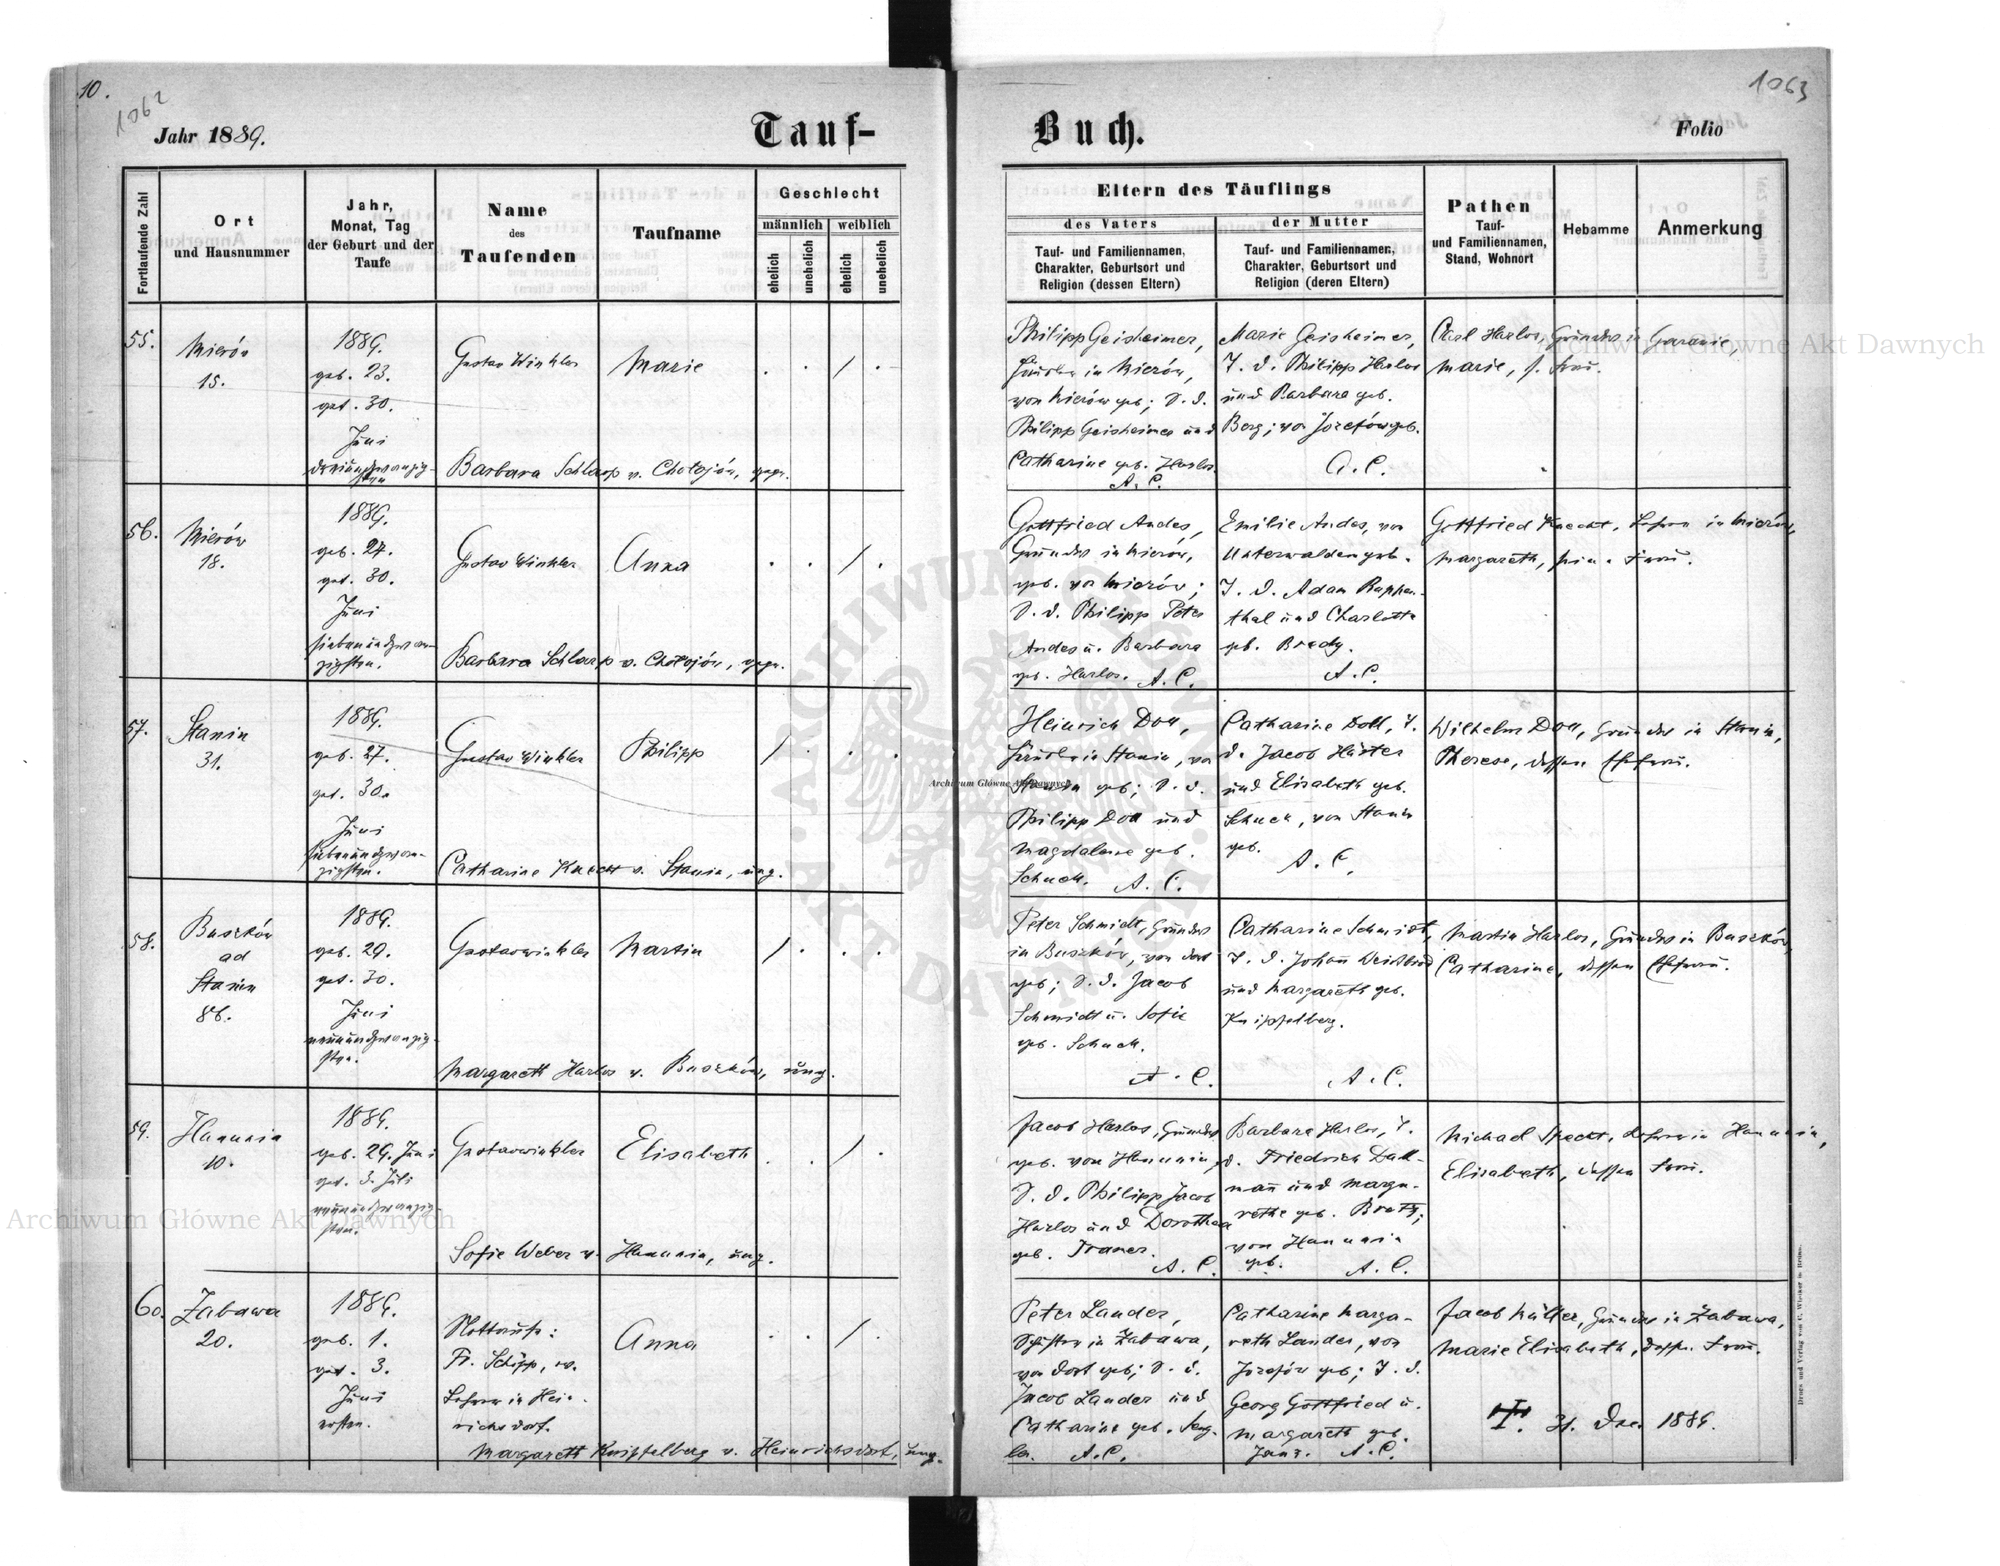 10.
1062
1063
Jahr 1889.
Tauf-
Buch.
Folio
Fortlaufende Zahl
Ort
und Hausnummer
Jahr,
Monat, Tag
der Geburt und der
Taufe
Name
des
Taufenden
Taufname
Geschlecht
männlich weiblich
ehelich
unehelich
ehelich
unehelich
Eltern des Täuflings
des Vaters
Tauf- und Familiennamen,
Charakter, Geburtsort und
Religion (dessen Eltern)
der Mutter
Tauf- und Familiennamen,
Charakter, Geburtsort und
Religion (deren Eltern)
Pathen
Tauf-
und Familiennamen,
Stand, Wohnort
Hebamme
Anmerkung
55.
Mierów
15.
1889.
geb. 23.
get. 30.
Juni
dreiundzwanzig-
sten
Gustav Winkler
Marie
Barbara Schlarp v. Chołojów, gepr.
Philipp Geisheimer,
in Mierów,
von Mierów geb; S. d.
Philipp Geisheimer und
Catharine geb. Harlos.
A. C.
Marie Geisheimer,
T. d. Philipp Harlos
und Barbara geb.
Berg; von Józefów geb.
A. C.
Carl Harlos, Grundw in
Marie, s. Frau.
56.
Mierów
18.
1889.
geb. 27.
get. 30.
Juni
siebenundzwan-
zigsten.
Gustav Winkler
Anna
Barbara Schlarp v. Chołojów, gepr.
Gottfried Andes,
Grundw in Mierów,
geb. von Mierów;
S. d. Philipp Peter
Andes u. Barbara
geb. Harlos. A. C.
Emilie Andes, von
Unterwalden geb.
T. d. Adam Rappen-
thal und Charlotte
geb. Brady.
A. C.
Gottfried Knecht, Lehrer in Mierów,
Margareth, seine Frau.
57.
Stanin
31.
1889.
geb. 27.
get. 30.
Juni
siebenundzwan-
zigsten.
Gustav Winkler
Philipp
Catharine Knecht v. Stanin, ung.
Heinrich Doll,
in Stanin, von
Stanin geb; S. d.
Philipp Doll und
Magdalene geb.
Schuck. A. C.
Catharine Doll, T.
d. Jacob Hüster
und Elisabeth geb.
Schuck, von Stanin
geb.
A. C.
Wilhelm Doll, Grundw in Stanin,
Therese, dessen Ehefrau.
58.
Buszków
ad
Stanin
86.
1889.
geb. 29.
get. 30.
Juni
neunundzwanzig-
sten.
Gustav Winkler
Martin
Margareth Harlos v. Buszków, ung.
Peter Schmidt, Grundw
in Buszków, von dort
geb; S. d. Jacob
Schmidt u. Sofie
geb. Schuck.
A. C.
Catharine Schmidt,
T. d. Johann Weissbrod
und Margareth geb.
Knippelberg.
A. C.
Martin Harlos, Grundw in Buszków,
Catharine, dessen Ehefrau.
59.
Hanunin
10.
1889.
geb. 29. Juni
get. 3. Juli
neunundzwanzig-
sten.
Gustav Winkler
Elisabeth
Sofie Weber v. Hanunin, ung.
Jacob Harlos, Grundw
geb. von Hanunin,
S. d. Philipp Jacob
Harlos und Dorothea
geb.
A. C.
Barbara Harlos, T.
d. Friedrich Dall-
mann und Marga-
rethe geb.
von Hanunin
geb. A. C.
Michael Specht, Lehrer in Hanunin,
Elisabeth, dessen Frau.
60.
Żabawa
20.
1889.
geb. 1.
get. 3.
Juni
ersten.
Nottaufe:
Fr. Schöpp, ev.
Lehrer in Hein-
richsdorf.
Anna
Margareth Knippelberg v. Heinrichsdorf, ung.
Peter Lander,
Schuster in Żabawa,
von dort geb; S. d.
Jacob Lander und
Catharine geb. Seng-
ler. A. C.
Catharine Marga-
reth Lander, von
Józefów geb; T. d.
Georg Gottfried u.
Margareth geb.
A. C.
Jacob Müller, Grundw in Żabawa,
Marie Elisabeth, dess. Frau.
31. Dec. 1889.
Archiwum Główne Akt Dawnych
Archiwum Główne Akt Dawnych
Archiwum Główne Akt Dawnych
ARCHIWUM GŁÓWNE AKT DAWNYCH